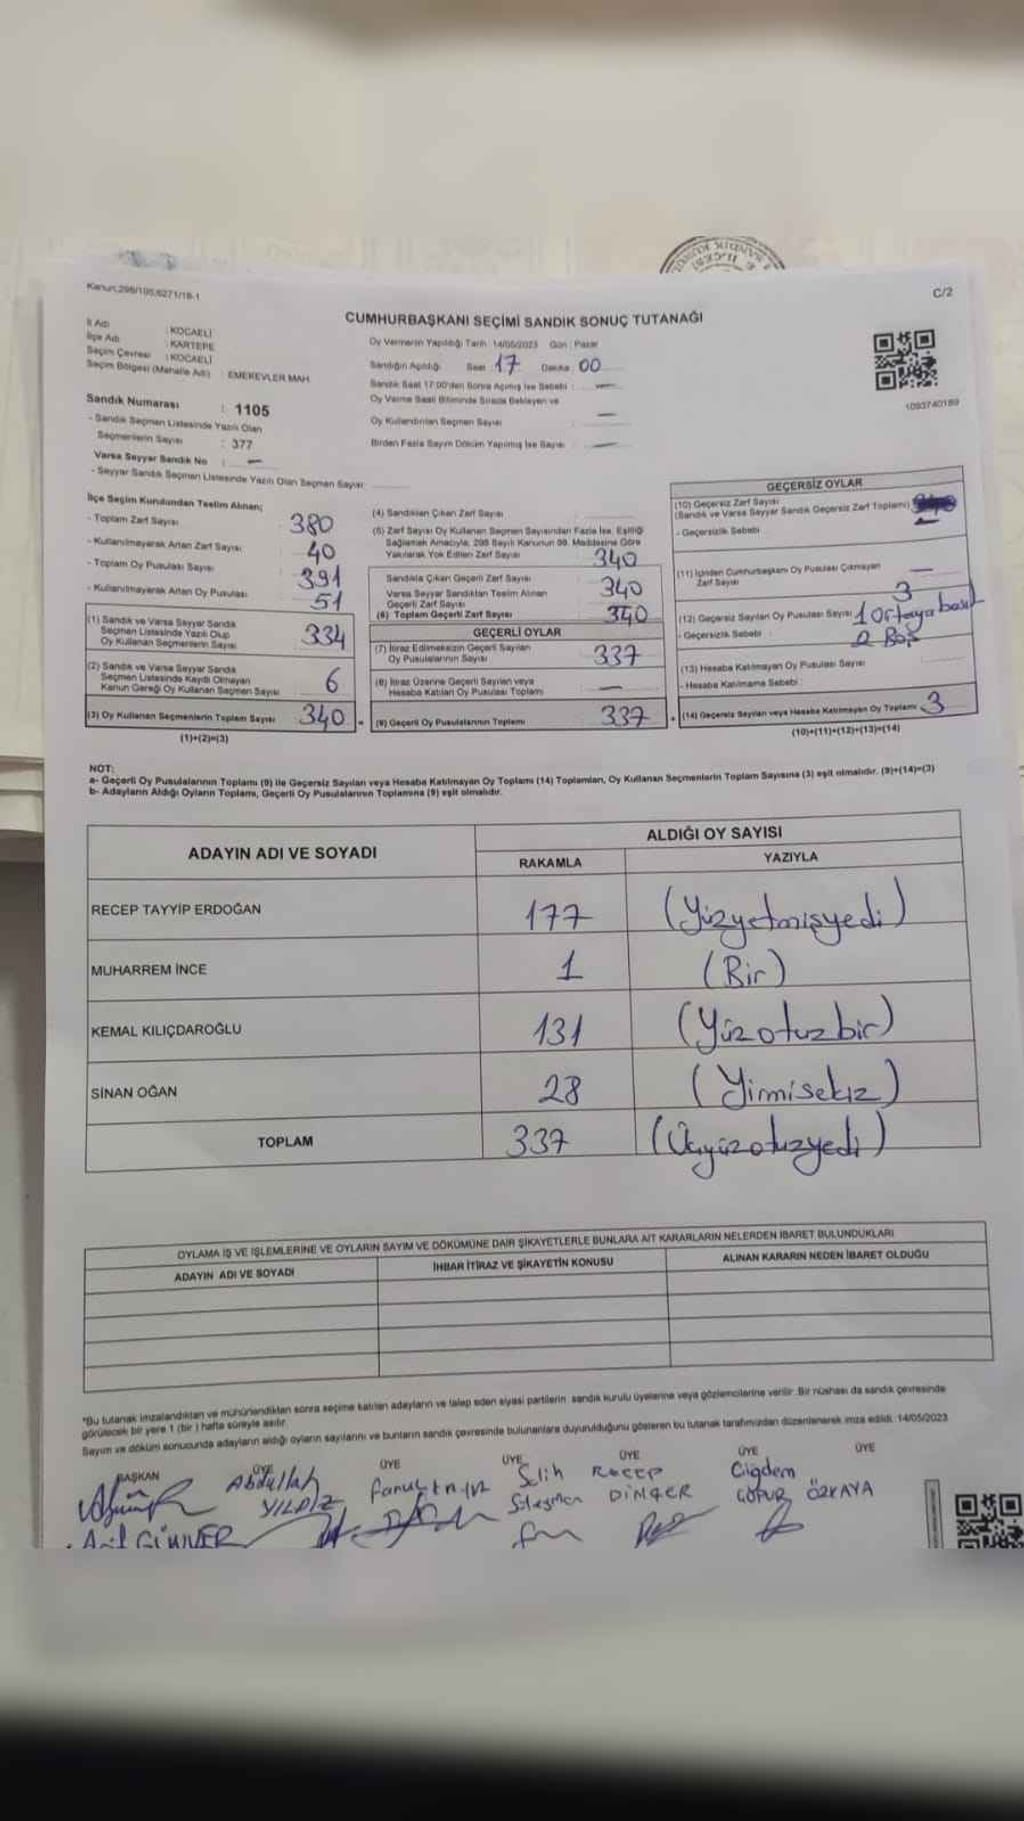 Kanun:298/105,6271/18-1
C/2
CUMHURBAŞKANI SEÇİMİ SANDIK SONUÇ TUTANAĞI
İl Adı : KOCAELİ
İlçe Adı : KARTEPE
Seçim Çevresi : KOCAELİ
Seçim Bölgesi (Mahalle Adı) : EMEKEVLER MAH.
Sandık Numarası : 1105
- Sandık Seçmen Listesinde Yazılı Olan
Seçmenlerin Sayısı : 377
Varsa Seyyar Sandık No : —
- Seyyar Sandık Seçmen Listesinde Yazılı Olan Seçmen Sayısı:
Oy Vermenin Yapıldığı Tarih: 14/05/2023 Gün : Pazar
Sandığın Açıldığı Saat 17 Dakika 00
Sandık Saat 17:00'den Sonra Açılmış İse Sebebi : —
Oy Verme Saati Bitiminde Sırada Bekleyen ve
Oy Kullandırılan Seçmen Sayısı : —
Birden Fazla Sayım Döküm Yapılmış İse Sayısı : —
1093740189
İlçe Seçim Kurulundan Teslim Alınan;
- Toplam Zarf Sayısı 380
- Kullanılmayarak Artan Zarf Sayısı 40
- Toplam Oy Pusulası Sayısı 391
- Kullanılmayarak Artan Oy Pusulası 51
(1) Sandık ve Varsa Seyyar Sandık
Seçmen Listesinde Yazılı Olup
Oy Kullanan Seçmenlerin Sayısı 334
(2) Sandık ve Varsa Seyyar Sandık
Seçmen Listesinde Kaydı Olmayan
Kanun Gereği Oy Kullanan Seçmen Sayısı 6
(3) Oy Kullanan Seçmenlerin Toplam Sayısı 340
(1)+(2)=(3)
(4) Sandıktan Çıkan Zarf Sayısı
(5) Zarf Sayısı Oy Kullanan Seçmen Sayısından Fazla İse, Eşitliği
Sağlamak Amacıyla, 298 Sayılı Kanunun 98. Maddesine Göre
Yakılarak Yok Edilen Zarf Sayısı 340
Sandıkta Çıkan Geçerli Zarf Sayısı 340
Varsa Seyyar Sandıktan Teslim Alınan
Geçerli Zarf Sayısı
(6) Toplam Geçerli Zarf Sayısı 340
GEÇERLİ OYLAR
(7) İtiraz Edilmeksizin Geçerli Sayılan
Oy Pusulalarının Sayısı 337
(8) İtiraz Üzerine Geçerli Sayılan veya
Hesaba Katılan Oy Pusulası Toplamı —
(9) Geçerli Oy Pusulalarının Toplamı 337
GEÇERSİZ OYLAR
(10) Geçersiz Zarf Sayısı
(Sandık ve Varsa Seyyar Sandık Geçersiz Zarf Toplamı) —
- Geçersizlik Sebebi :
(11) İçinden Cumhurbaşkanı Oy Pusulası Çıkmayan
Zarf Sayısı —
3
(12) Geçersiz Sayılan Oy Pusulası Sayısı 1 Ortaya
- Geçersizlik Sebebi : 2 Boş
(13) Hesaba Katılmayan Oy Pusulası Sayısı
- Hesaba Katılmama Sebebi :
(14) Geçersiz Sayılan veya Hesaba Katılmayan Oy Toplamı 3
(10)+(11)+(12)+(13)=(14)
NOT:
a- Geçerli Oy Pusulalarının Toplamı (9) ile Geçersiz Sayılan veya Hesaba Katılmayan Oy Toplamı (14) Toplamları, Oy Kullanan Seçmenlerin Toplam Sayısına (3) eşit olmalıdır. (9)+(14)=(3)
b- Adayların Aldığı Oyların Toplamı, Geçerli Oy Pusulalarının Toplamına (9) eşit olmalıdır.
ADAYIN ADI VE SOYADI
ALDIĞI OY SAYISI
RAKAMLA YAZIYLA
RECEP TAYYİP ERDOĞAN 177 (Yüzyetmişyedi)
MUHARREM İNCE 1 (Bir)
KEMAL KILIÇDAROĞLU 131 (Yüzotuzbir)
SİNAN OĞAN 28 (Yirmisekiz)
TOPLAM 337 (Üçyüzotuzyedi)
OYLAMA İŞ VE İŞLEMLERİNE VE OYLARIN SAYIM VE DÖKÜMÜNE DAİR ŞİKAYETLERLE BUNLARA AİT KARARLARIN NELERDEN İBARET BULUNDUKLARI
ADAYIN ADI VE SOYADI İHBAR İTİRAZ VE ŞİKAYETİN KONUSU ALINAN KARARIN NEDEN İBARET OLDUĞU
*Bu tutanak imzalandıktan ve mühürlendikten sonra seçime katılan adayların ve talep eden siyasi partilerin sandık kurulu üyelerine veya gözlemcilerine verilir. Bir nüshası da sandık çevresinde
görülecek bir yere 1 (bir) hafta süreyle asılır.
Sayım ve döküm sonucunda adayların aldığı oyların sayılarını ve bunların sandık çevresinde bulunanlara duyurulduğunu gösteren bu tutanak tarafımızdan düzenlenerek imza edildi. 14/05/2023
BAŞKAN ÜYE ÜYE ÜYE ÜYE ÜYE ÜYE
Abdullah YILDIZ
Salih
RECEP DİNÇER
Çiğdem ÖZKAYA